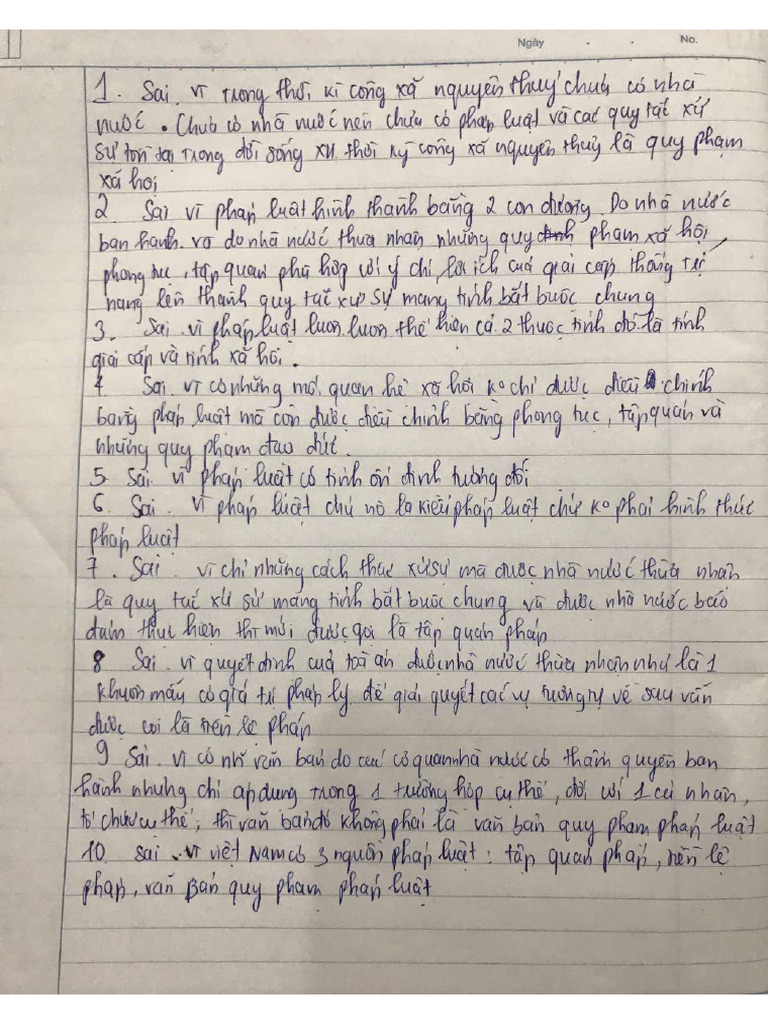 Ngày . . No.
1. Sai. vì trong thời kì công xã nguyên thuỷ chưa có nhà
nước. Chưa có nhà nước nên chưa có pháp luật và các quy tắc xử
sự tồn tại trong đời sống XH thời kỳ công xã nguyên thuỷ là quy phạm
xã hội
2 Sai vì pháp luật hình thành bằng 2 con đường. Do nhà nước
ban hành và do nhà nước thừa nhận những quy phạm xã hội,
phong tục, tập quán phù hợp với ý chí, lợi ích của giai cấp thống trị
nâng lên thành quy tắc xử sự mang tính bắt buộc chung
3. Sai. vì pháp luật luôn luôn thể hiện cả 2 thuộc tính đó là tính
giai cấp và tính xã hội.
4 Sai. vì có những mối quan hệ xã hội ko chỉ được điều chỉnh
bằng pháp luật mà còn được điều chỉnh bằng phong tục, tập quán và
những quy phạm đạo đức.
5. Sai. vì pháp luật có tính ổn định tương đối
6. Sai. vì pháp luật chủ nô là kiểu pháp luật chứ ko phải hình thức
pháp luật
7. Sai. vì chỉ những cách thức xử sự mà được nhà nước thừa nhận
là quy tắc xử sự mang tính bắt buộc chung và được nhà nước bảo
đảm thực hiện thì mới được gọi là tập quán pháp
8 Sai. vì quyết định của toà án được nhà nước thừa nhận như là 1
khuôn mẫu có giá trị pháp lý để giải quyết các vụ tương tự về sau vẫn
được coi là tiền lệ pháp
9 Sai. vì có những văn bản do các cơ quan nhà nước có thẩm quyền ban
hành nhưng chỉ áp dụng trong 1 trường hợp cụ thể, đối với 1 cá nhân,
tổ chức cụ thể, thì văn bản đó không phải là văn bản quy phạm pháp luật
10. sai. vì việt Nam có 3 nguồn pháp luật: tập quán pháp, tiền lệ
pháp, văn bản quy phạm pháp luật